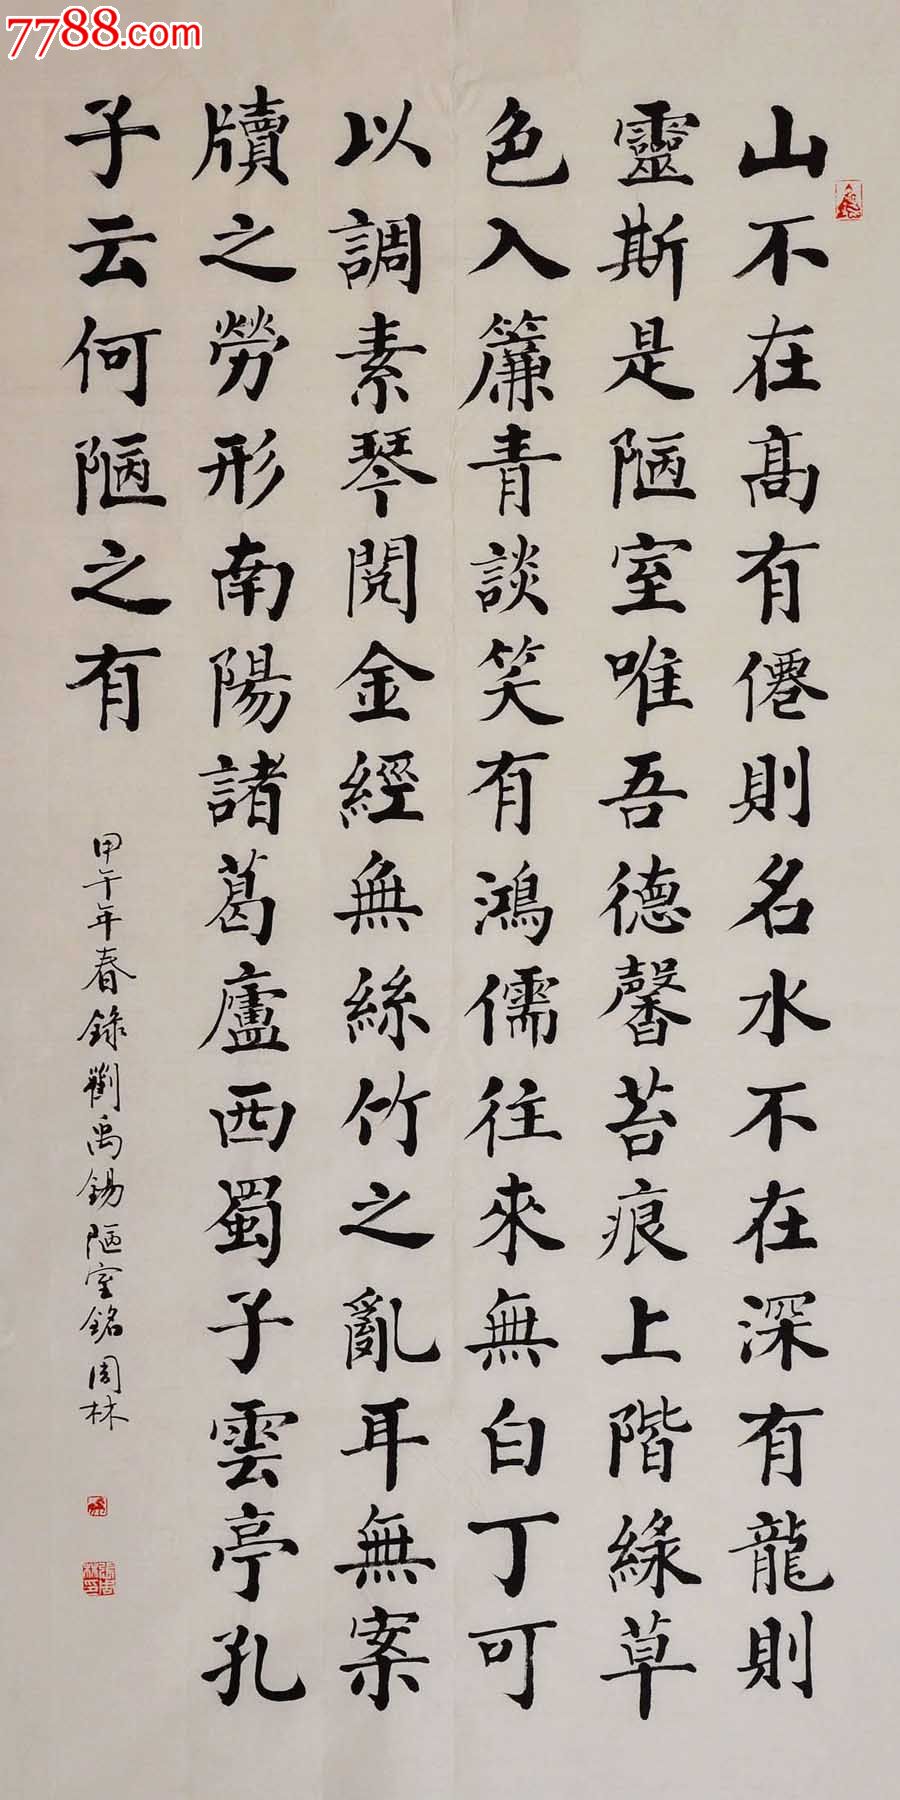 7788.com
山不在高有僊則名水不在深有龍則
靈斯是陋室唯吾德馨苔痕上階綠草
色入簾青談笑有鴻儒往來無白丁可
以調素琴閱金經無絲竹之亂耳無案
牘之勞形南陽諸葛廬西蜀子雲亭孔
子云何陋之有
甲午年春錄劉禹錫陋室銘周林